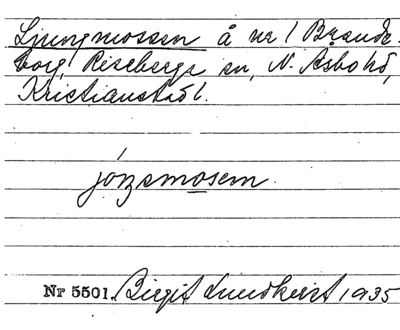 Ljungmossen å nr 1 Brande-
borg, Riseberga sn, N. Åsbo hd,
Kristianstads l.
jóŋsmosem.
Nr 5501. Birgit Lundkvist 1935